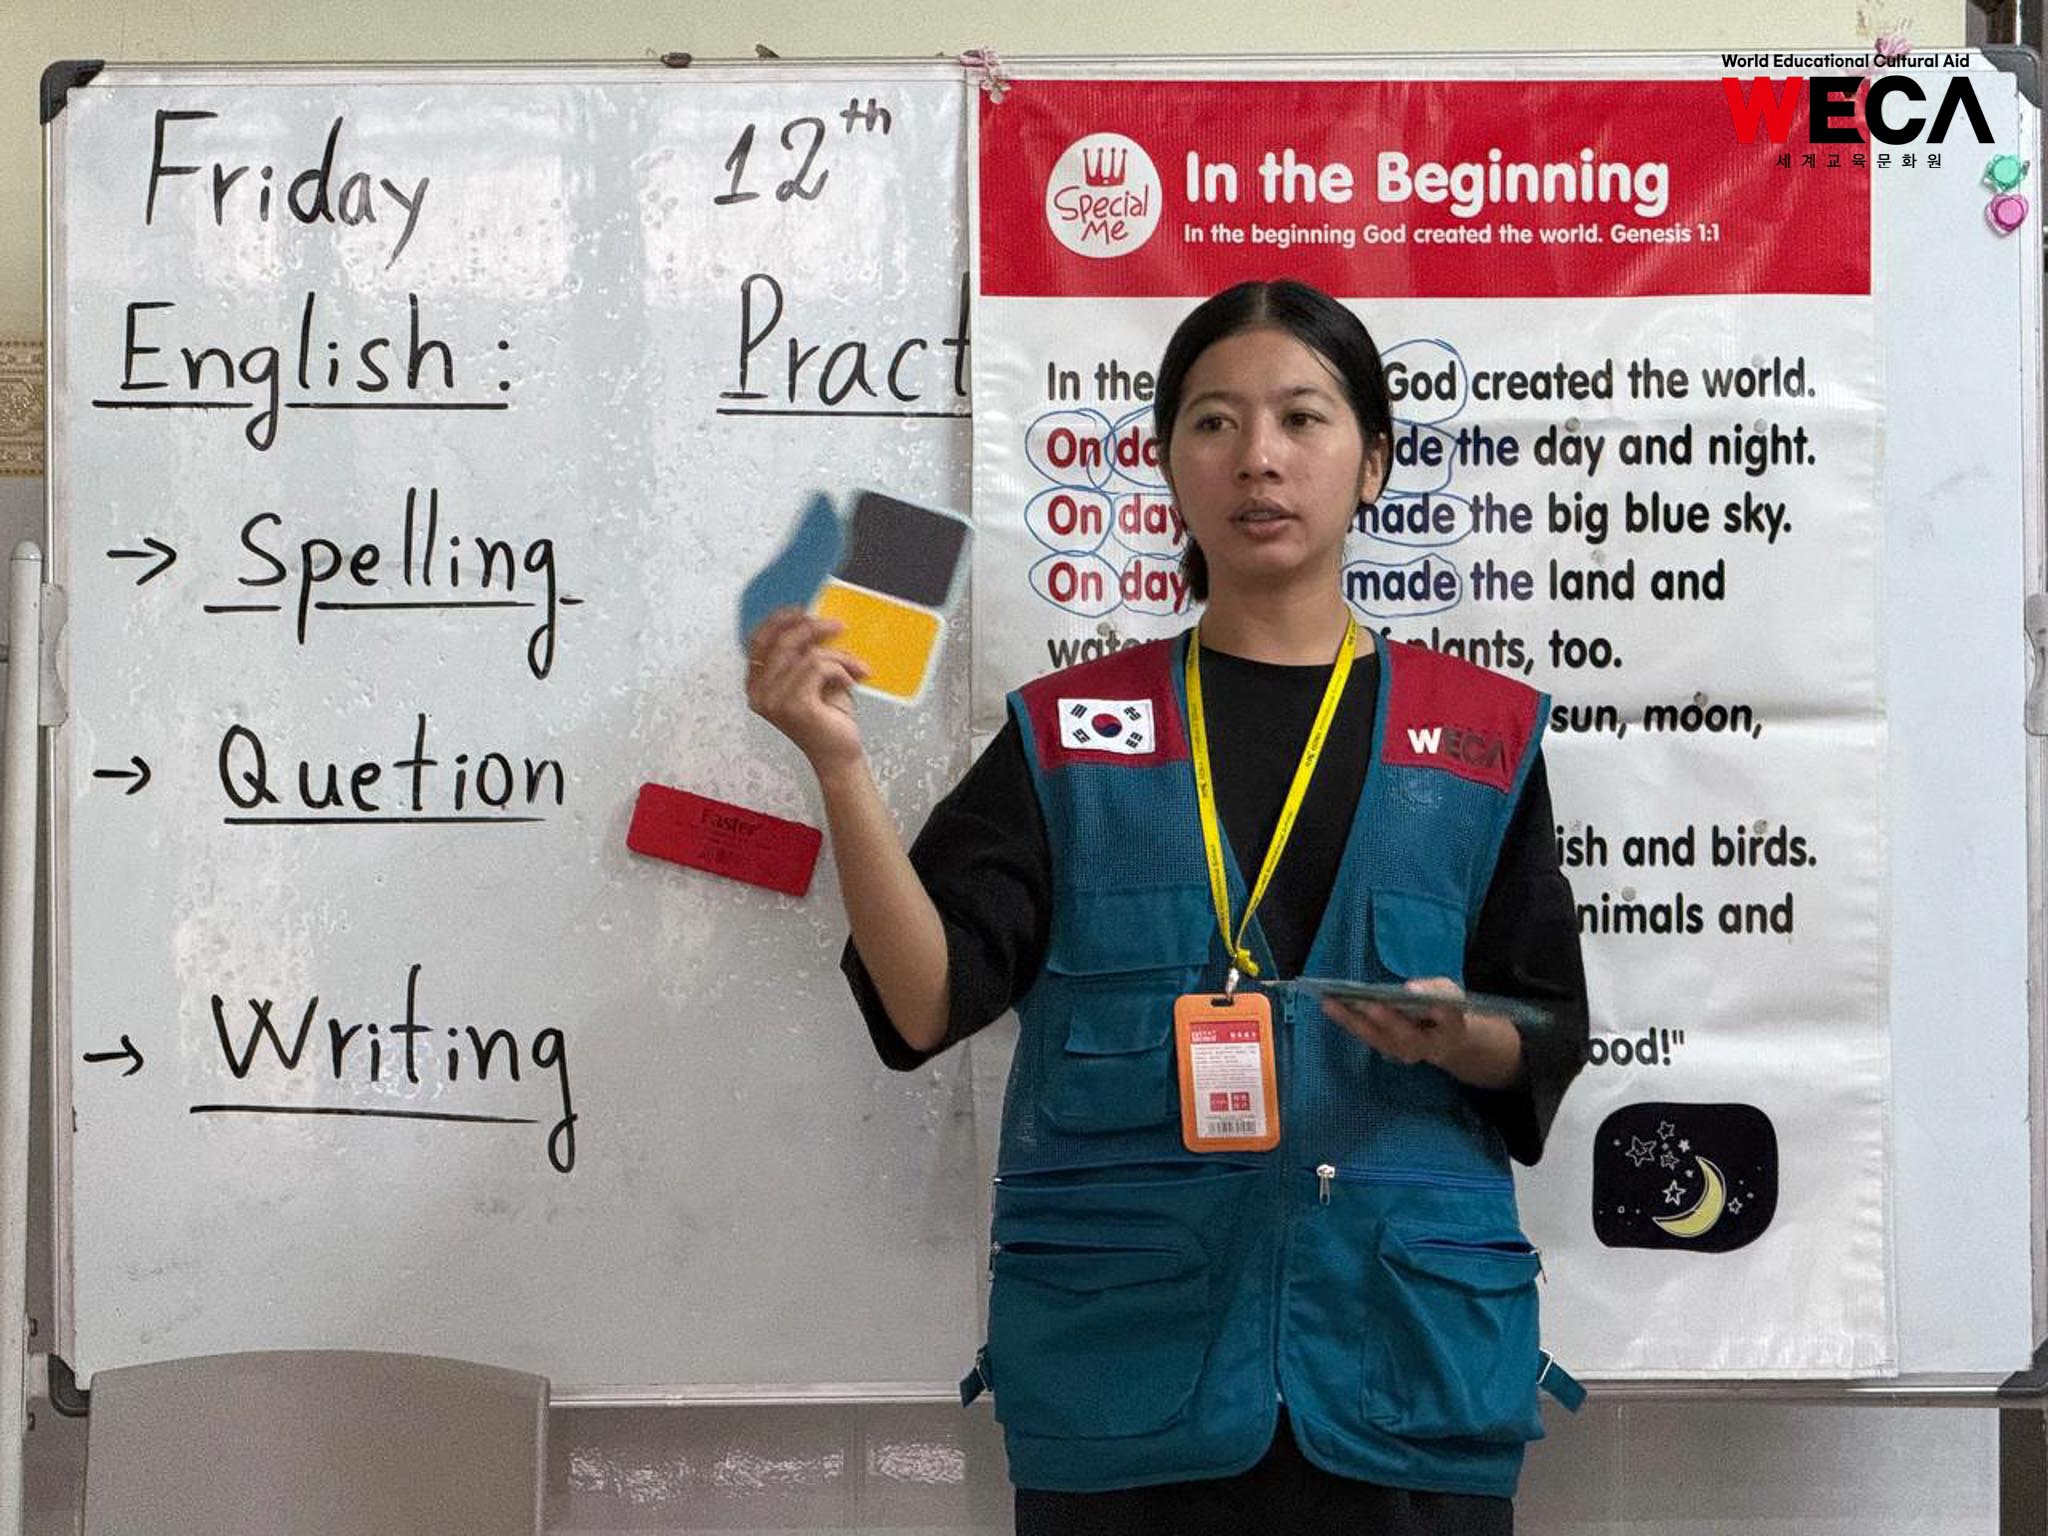 World Educational Cultural Aid
WECA
세계교육문화원
Friday 12th
English: Pract
→ Spelling
→ Quetion
→ Writing
Faster
Special
Me
In the Beginning
In the beginning God created the world. Genesis 1:1
In the God created the world.
On de the day and night.
On day made the big blue sky.
On day made the land and
plants, too.
sun, moon,
ish and birds.
nimals and
ood!"
WECA